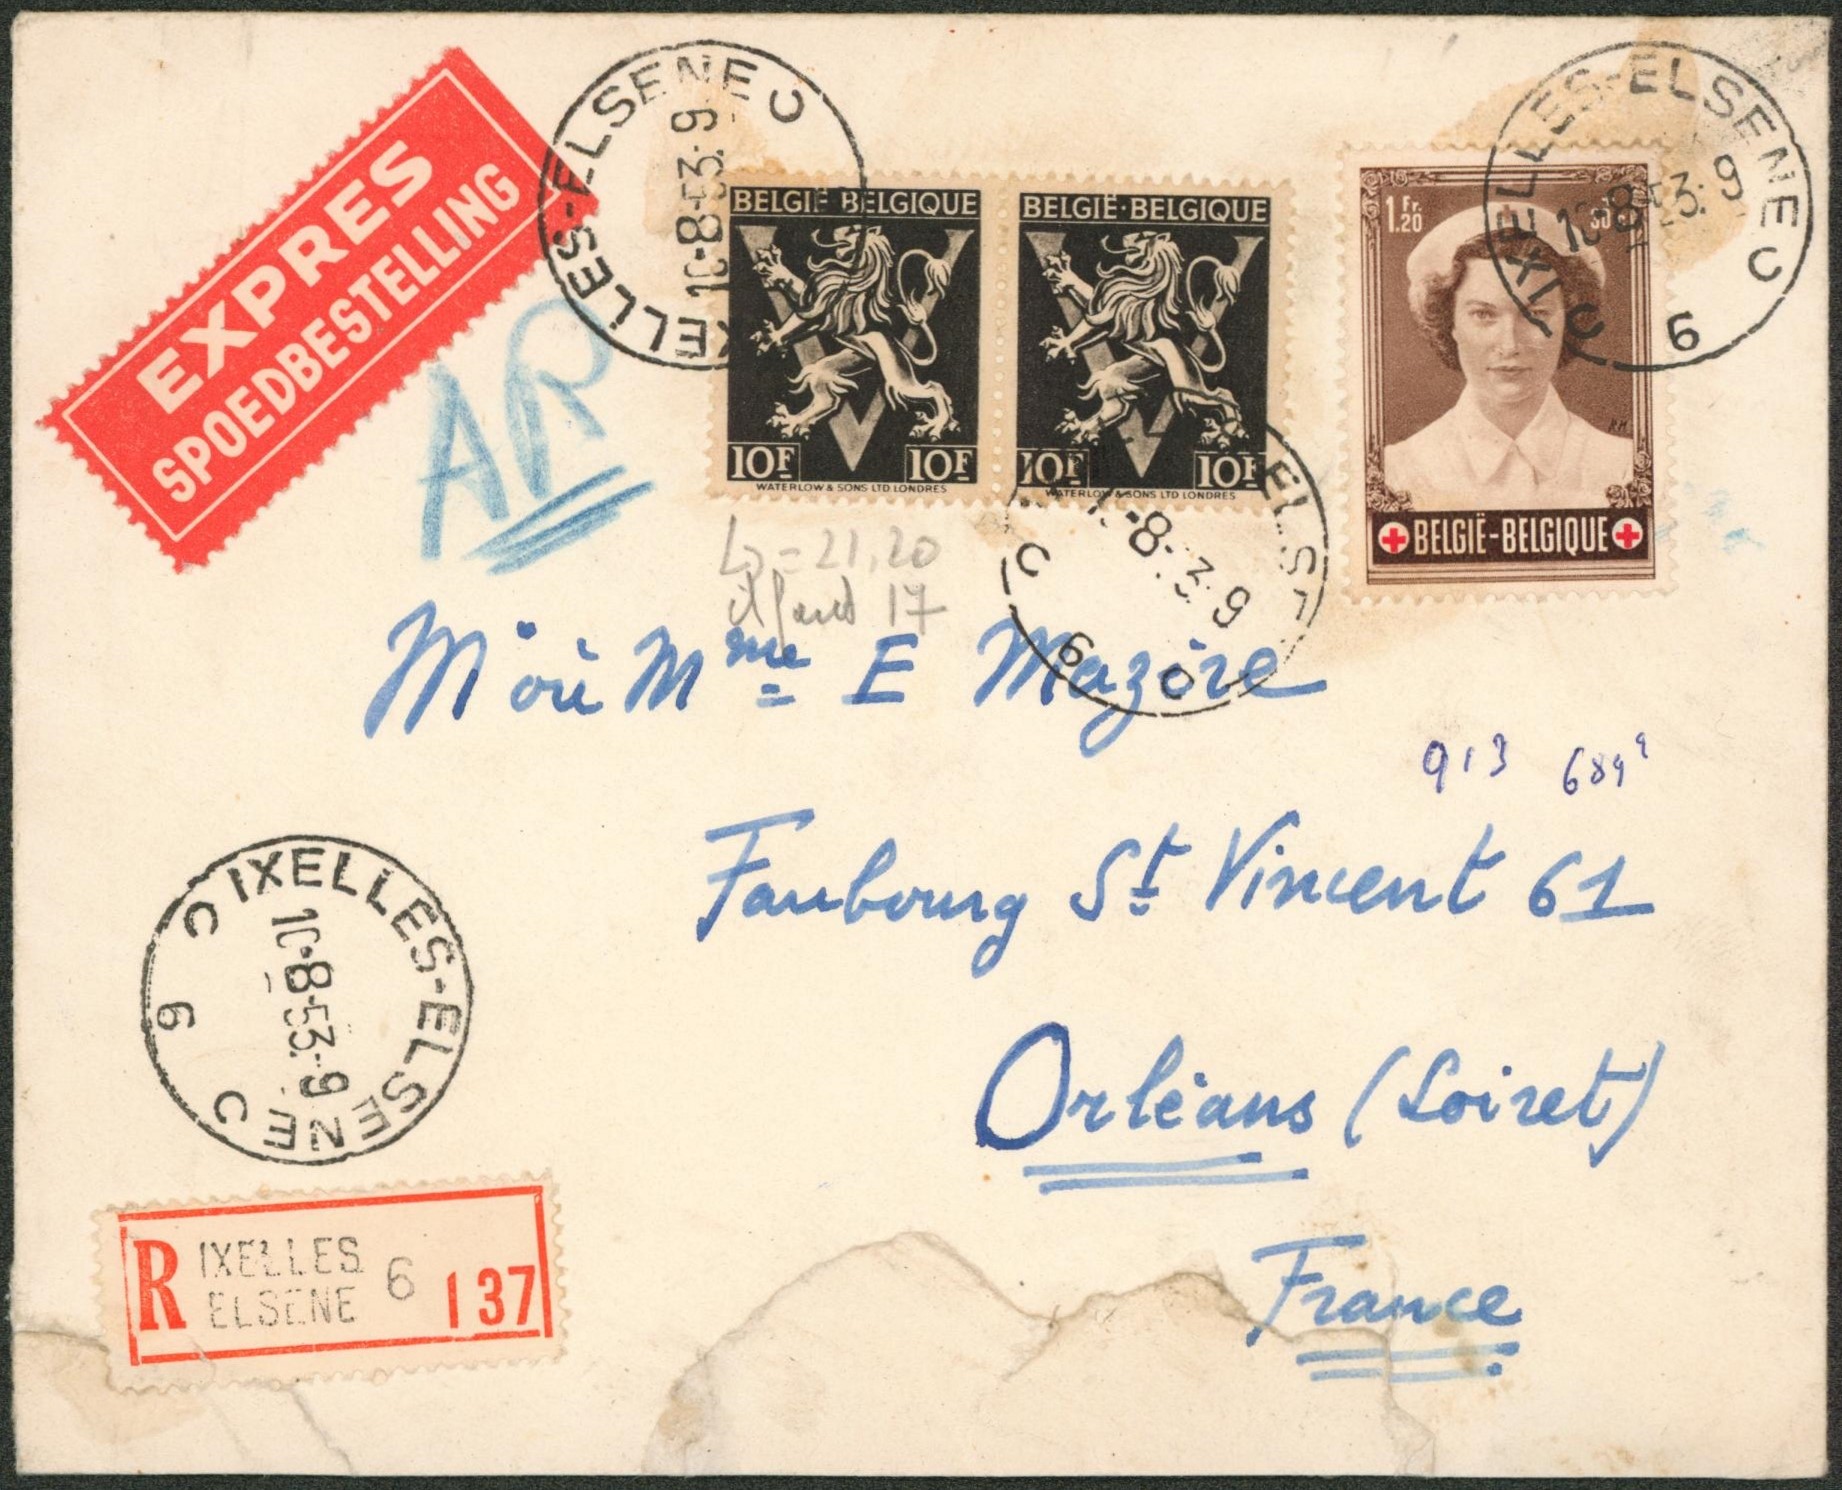 EXPRES
SPOEDBESTELLING
IXELLES-ELSENE
10-8-53.-9
C
BELGIË BELGIQUE
10F 10F
WATERLOW & SONS LTD LONDRES
BELGIË·BELGIQUE
10F 10F
WATERLOW & SONS LTD LONDRES
1.20 Fr.
BELGIË-BELGIQUE
IXELLES-ELSENE
10-8-53.-9
C 6 C
AR
= 21,20
17
C 6 C
M ou Mme E Mazère
913 689
Faubourg St Vincent 61
Orléans (Loiret)
France
IXELLES-ELSENE
10-8-53.-9
C 6 C
R IXELLES
ELSENE 6 137